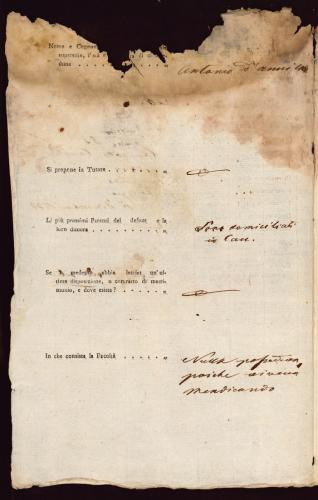 Nome e Cognome
superstite, l'età
dine . . . . . . . . . . . . „
Antonio d'anni
Si propone in Tutore . . . . . . . „
Li più prossimi Parenti del defunto e la
loro dimora . . . . . . . . . . „
Sono domiciliati
in
Se il medesimo abbia lasciato un'ul-
tima disposizione, o contratto di matri-
monio, e dove esista? . . . . . . . „
In che consista la Facoltà . . . . . „
Nulla
poiche viveva
mendicando